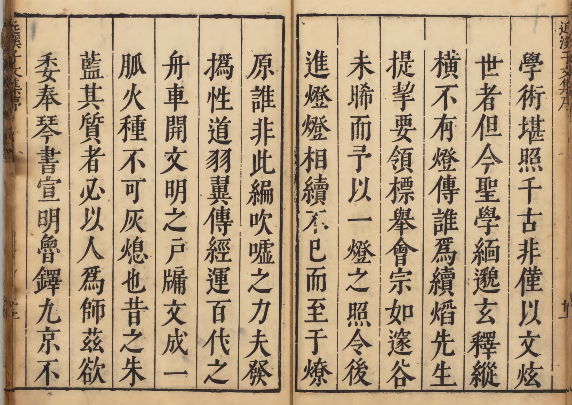 近溪子文集序
學術堪照千古非僅以文炫
世者但今聖學緬邈玄釋縱
橫不有燈傳誰爲續熖先生
提挈要領標舉會宗如邃谷
未晞而予以一燈之照令後
進燈燈相續不已而至于燎
原誰非此編吹噓之力夫發
撝性道羽翼傳經運百代之
舟車開文明之戶牖文成一
脈火種不可灰熄也昔之朱
藍其質者必以人爲師茲欲
委奉琴書宣明魯鐸九京不
近溪子文集序